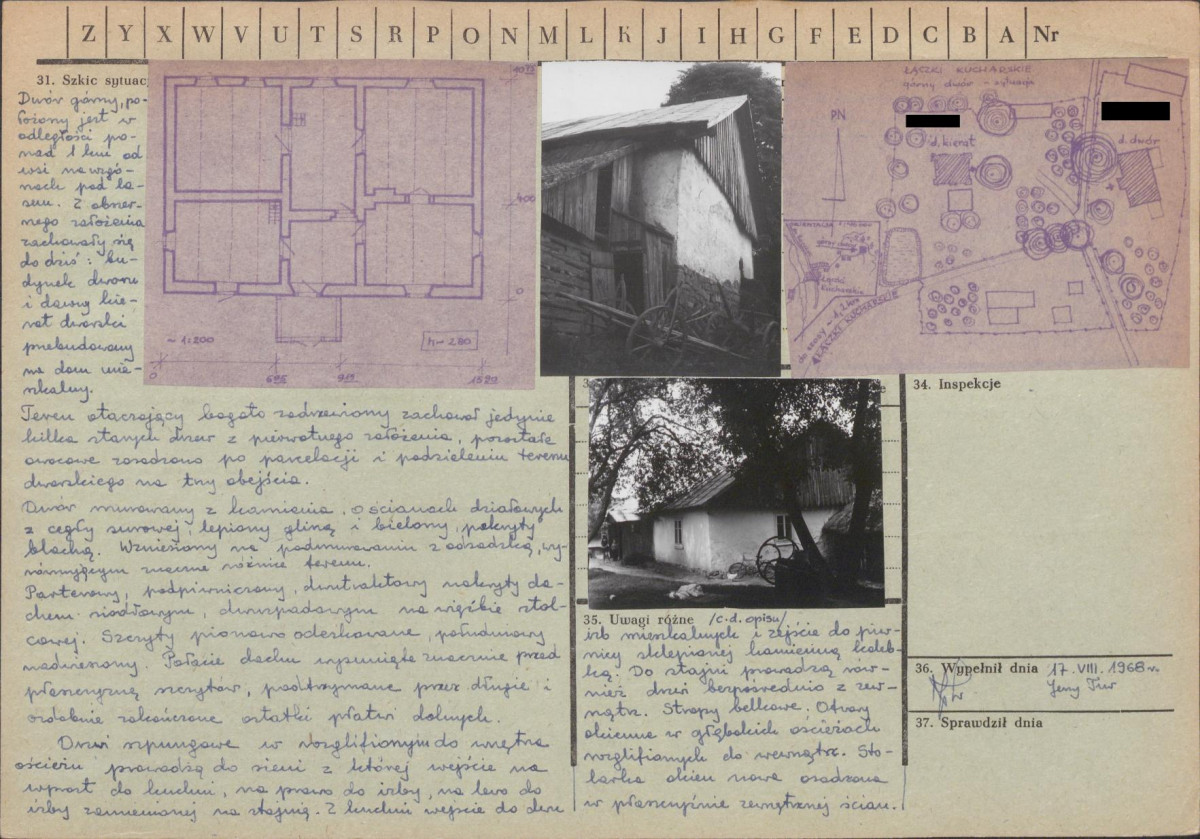 Z Y X W V U T S R P O N M L K J I H G F E D C B A Nr
31. Szkic sytuac
Dwór górny, po-
łożony jest w
odległości po-
nad 1 km od
wsi na wzgó-
rzach pod la-
sem. Z obszer-
nego założenia
zachowały się
do dziś: bu-
dynek dworu
i dawny kie-
rat dworski
przebudowany
na dom mie-
szkalny.
Teren otaczający bogato zadrzewiony zachował jedynie
kilka starych drzew z pierwotnego założenia, pozostałe
owocowe zasadzono po parcelacji i podzieleniu terenu
dworskiego na trzy obejścia.
Dwór murowany z kamienia, o ścianach działowych
z cegły surowej, lepiony gliną i bielony, pokryty
blachą. Wzniesiony na podmurowaniu z odsadzką, wy-
równującym znaczne różnice terenu.
Parterowy, podpiwniczony, dwutraktowy nakryty da-
chem siodłowym, dwuspadowym na więźbie stol-
cowej. Szczyty pionowo odeskowane, południowy
nadwieszony. Połacie dachu wysunięte znacznie przed
płaszczyznę szczytów, podtrzymane przez długie i
ozdobnie zakończone ostatki płatwi dolnych.
Drzwi szpungowe w rozglifionym do wnętrza
ościeżu prowadzą do sieni z której wejście na
wprost do kuchni, na prawo do izby, na lewo do
izby zamienionej na stajnię. Z kuchni wejście do dwu
~ 1:200
h = 280
0
695
911
1520
1012
400
0
ŁĄCZKI KUCHARSKIE
górny dwór - sytuacja
PN
d. kierat
d. dwór
ORIENTACJA
Łączki
Kucharskie
do szosy - 1,2 km
ŁĄCZKI KUCHARSKIE
34. Inspekcje
35. Uwagi różne /c.d. opisu/
izb mieszkalnych i zejście do piw-
nicy sklepionej kamienną koleb-
ką. Do stajni prowadzą rów-
nież drzwi bezpośrednio z zew-
nątrz. Stropy belkowe. Otwory
okienne w głębokich ościeżach
rozglifionych do wewnątrz. Sto-
larka okien nowa osadzona
w płaszczyźnie zewnętrznej ścian.
36. Wypełnił dnia 17.VIII.1968 r.
Jerzy Tur
37. Sprawdził dnia